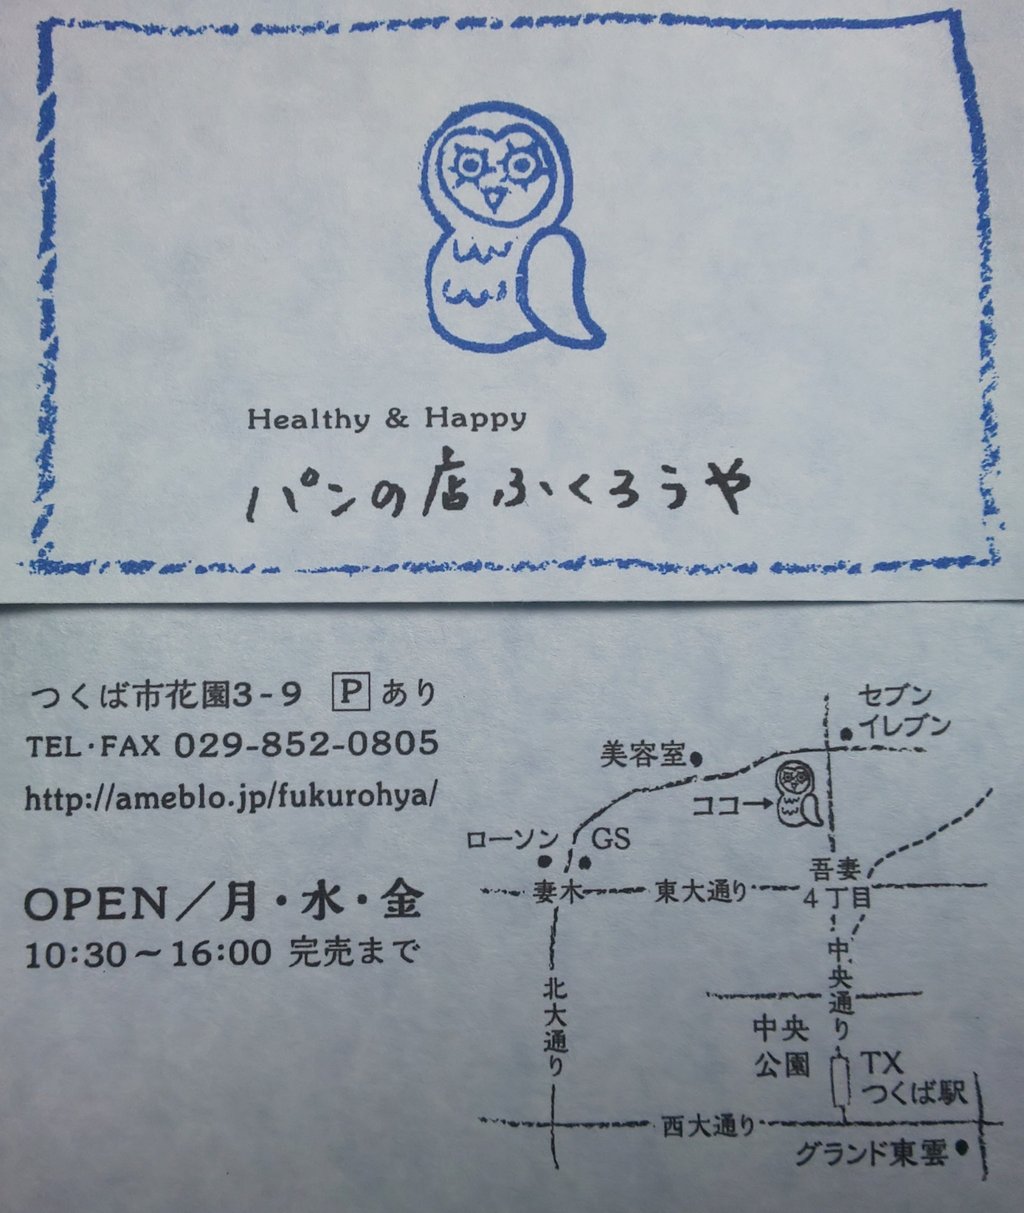 Healthy & Happy
パンの店ふくろうや
つくば市花園3-9 Pあり
TEL・FAX 029-852-0805
http://ameblo.jp/fukurohya/
OPEN／月・水・金
10:30～16:00 完売まで
セブン
イレブン
美容室
ココ→
ローソン
GS
妻木
東大通り
吾妻
4丁目
中央通り
北大通り
中央
公園
TX
つくば駅
西大通り
グランド東雲